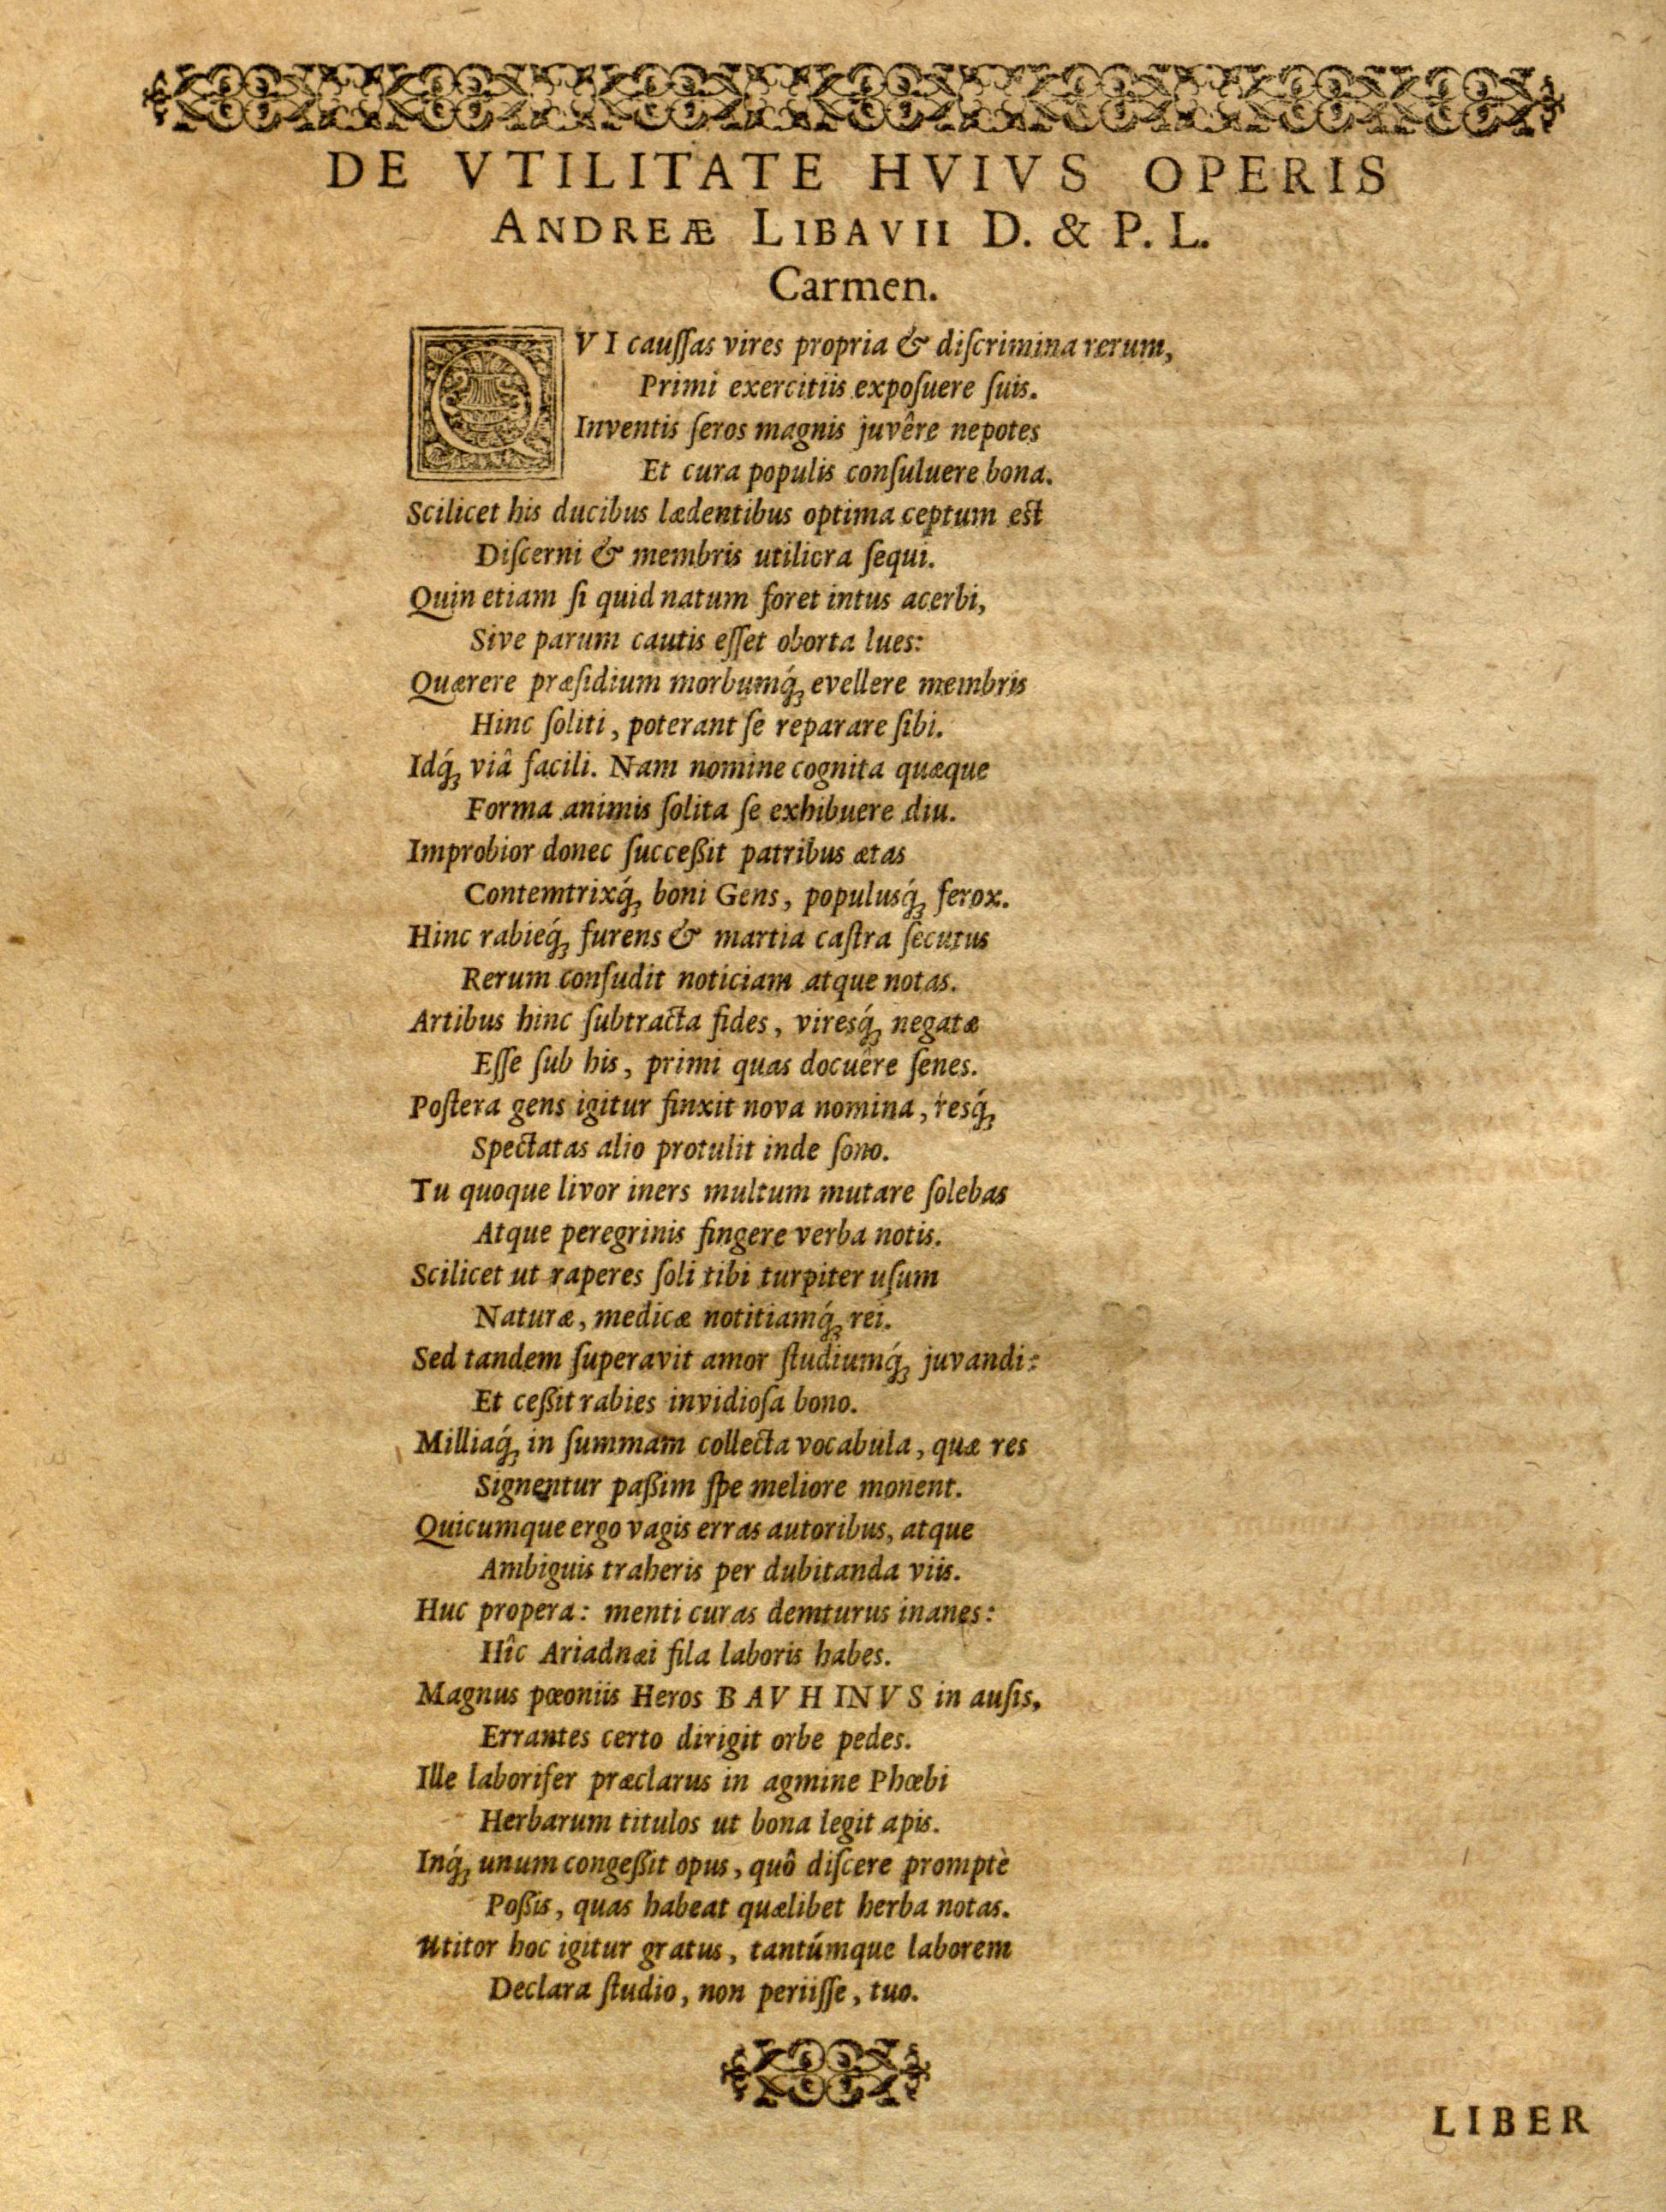 DE VTILITATE HVIVS OPERIS
ANDREÆ LIBAVII D. & P. L.
Carmen.
QVI cauſſas vires propria & diſcrimina rerum,
Primi exercitiis expoſuere ſuis.
Inventis ſeros magnis juvêre nepotes
Et cura populis conſuluere bona.
Scilicet his ducibus lædentibus optima ceptum est
Diſcerni & membris utiliora ſequi.
Quin etiam ſi quid natum foret intus acerbi,
Sive parum cautis eſſet oborta lues:
Quærere præſidium morbumq́; evellere membris
Hinc ſoliti, poterant ſe reparare ſibi.
Idq́; viâ facili. Nam nomine cognita quæque
Forma animis ſolita ſe exhibuere diu.
Improbior donec ſucceßit patribus ætas
Contemtrixq́; boni Gens, populusq́; ferox.
Hinc rabieq́; furens & martia caſtra ſecutus
Rerum confudit noticiam atque notas.
Artibus hinc ſubtracta fides, viresq́; negatæ
Eſſe ſub his, primi quas docuêre ſenes.
Poſtera gens igitur finxit nova nomina, resq́;
Spectatas alio protulit inde ſono.
Tu quoque livor iners multum mutare ſolebas
Atque peregrinis fingere verba notis.
Scilicet ut raperes ſoli tibi turpiter uſum
Naturæ, medicæ notitiamq́; rei.
Sed tandem ſuperavit amor ſtudiumq́; juvandi:
Et ceßit rabies invidioſa bono.
Milliaq́; in ſummam collecta vocabula, quæ res
Signentur paßim ſpe meliore monent.
Quicumque ergo vagis erras autoribus, atque
Ambiguis traheris per dubitanda viis.
Huc propera: menti curas demturus inanes:
Hîc Ariadnæi fila laboris habes.
Magnus pœoniis Heros BAVHINVS in auſis,
Errantes certo dirigit orbe pedes.
Ille laborifer præclarus in agmine Phœbi
Herbarum titulos ut bona legit apis.
Inq́; unum congeßit opus, quô diſcere promptè
Poßis, quas habeat quælibet herba notas.
Utitor hoc igitur gratus, tantúmque laborem
Declara ſtudio, non periiſſe, tuo.
LIBER